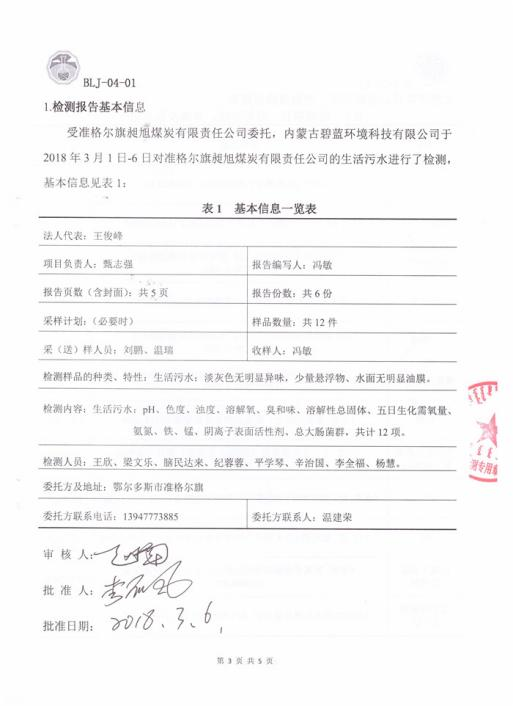 BLJ-04-01
1.检测报告基本信息
受准格尔旗昶旭煤炭有限责任公司委托，内蒙古碧蓝环境科技有限公司于
2018 年 3 月 1 日-6 日对准格尔旗昶旭煤炭有限责任公司的生活污水进行了检测，
基本信息见表 1：
表 1 基本信息一览表
法人代表：王俊峰
项目负责人：甄志强 报告编写人：冯敏
报告页数（含封面）：共 5 页 报告份数：共 6 份
采样计划：（必要时） 样品数量：共 12 件
采（送）样人员：刘鹏、温瑞 收样人：冯敏
检测样品的种类、特性：生活污水：淡灰色无明显异味，少量悬浮物、水面无明显油膜。
检测内容：生活污水：pH、色度、浊度、溶解氧、臭和味、溶解性总固体、五日生化需氧量、
氨氮、铁、锰、阴离子表面活性剂、总大肠菌群，共计 12 项。
检测人员：王欣、梁文乐、脑民达来、纪蓉蓉、平学琴、辛治国、李全福、杨慧。
委托方及地址：鄂尔多斯市准格尔旗
委托方联系电话：13947773885 委托方联系人：温建荣
审 核 人：
批 准 人：
批准日期： 2018.3.6
第 3 页 共 5 页
测专用章